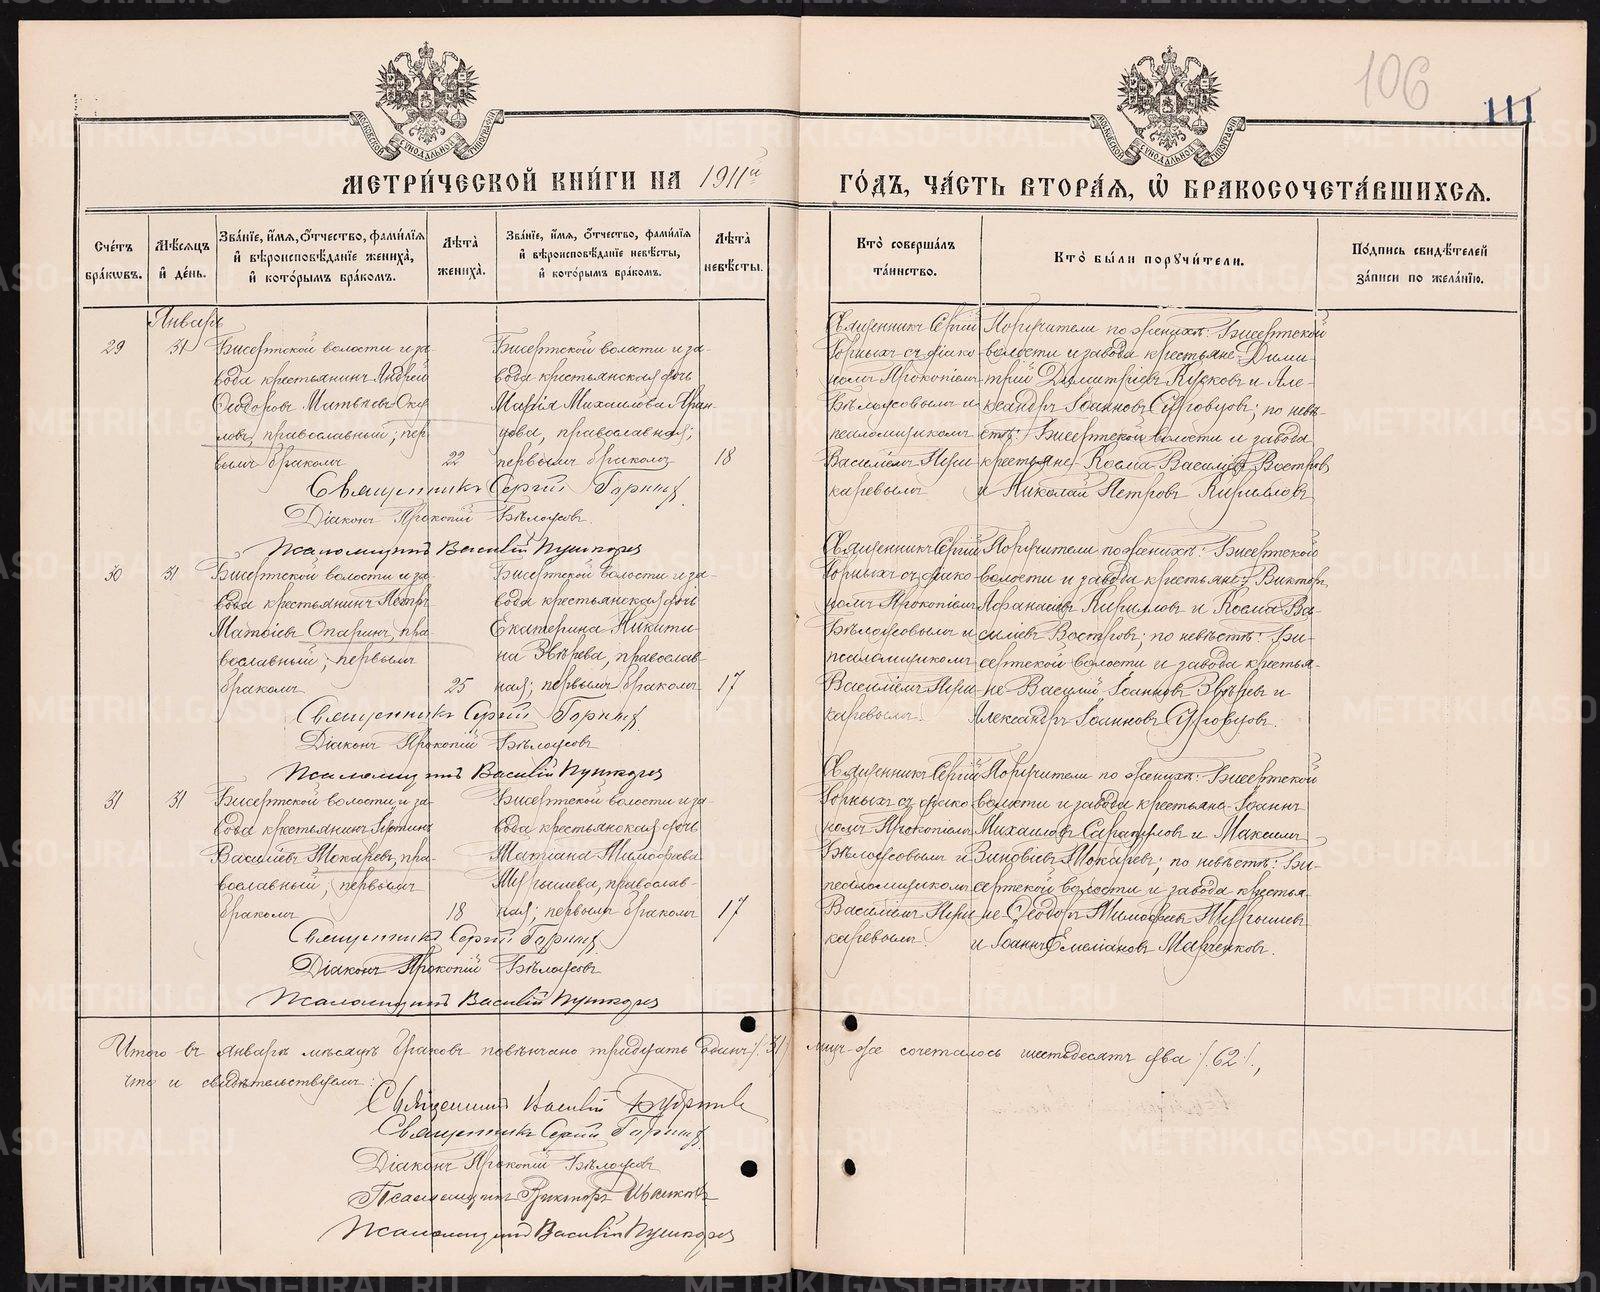 106
111
МЕТРИЧЕСКОЙ КНИГИ НА 1911й
ГОДЪ, ЧАСТЬ ВТОРАЯ, Ѡ БРАКОСОЧЕТАВШИХСЯ.
Счетъ браковъ.
Мѣсяцъ и день.
Званіе, имя, отчество, фамилія и вѣроисповѣданіе жениха, и которымъ бракомъ.
Лѣта жениха.
Званіе, имя, отчество, фамилія и вѣроисповѣданіе невѣсты, и которымъ бракомъ.
Лѣта невѣсты.
Кто совершалъ таинство.
Кто были поручители.
Подпись свидѣтелей записи по желанію.
Январь
29
31
Бисертской волости и за-
вода крестьянинъ Андрей
Ѳеодоровъ Матвѣевъ
православный; пер-
вымъ бракомъ
22
Бисертской волости и за-
вода крестьянская дочь
Марія Михаилова
православная;
первымъ бракомъ
18
Священникъ Сергій
Горныхъ съ діако-
номъ Прокопіемъ
Бѣлоусовымъ и
псаломщикомъ
Василіемъ Пуш-
каревымъ
Поручители по женихѣ: Бисертской
волости и завода крестьяне Дими-
трій Димитріевъ и Але-
ксандръ Іоанновъ Суровцовъ; по невѣ-
стѣ: Бисертской волости и завода
крестьяне Косма Василіевъ Востровъ
и Николай Петровъ Кирилловъ
Священникъ Сергій Горныхъ
Діаконъ Прокопій Бѣлоусовъ.
Псаломщикъ Василій Пушкарев
30
31
Бисертской волости и за-
вода крестьянинъ Петръ
Матвіевъ Опаринъ, пра-
вославный; первымъ
бракомъ
25
Бисертской волости и за-
вода крестьянская дочь
Екатерина Никити-
на Звѣрева, православ-
ная; первымъ бракомъ
17
Священникъ Сергій
Горныхъ съ діако-
номъ Прокопіемъ
Бѣлоусовымъ и
псаломщикомъ
Василіемъ Пуш-
каревымъ.
Поручители по женихѣ: Бисертской
волости и завода крестьяне: Викторъ
Аѳанасіевъ Кирилловъ и Косма Ва-
силіевъ Востровъ; по невѣстѣ: Би-
сертской волости и завода крестья-
не Василій Іоанновъ Звѣревъ и
Александръ Іоанновъ Суровцовъ.
Священникъ Сергій Горныхъ
Діаконъ Прокопій Бѣлоусовъ
Псаломщикъ Василій Пушкарев
31
31
Бисертской волости и за-
вода крестьянинъ
Василіевъ Токаревъ, пра-
вославный; первымъ
бракомъ
18
Бисертской волости и за-
вода крестьянская дочь
Татіана Тимоѳеева
православ-
ная; первымъ бракомъ
17
Священникъ Сергій
Горныхъ съ діако-
номъ Прокопіемъ
Бѣлоусовымъ и
псаломщикомъ
Василіемъ Пуш-
каревымъ.
Поручители по женихѣ: Бисертской
волости и завода крестьяне Іоаннъ
Михаиловъ Сарапуловъ и Максимъ
Зиновіевъ Токаревъ; по невѣстѣ: Би-
сертской волости и завода крестья-
не Ѳеодоръ Тимоѳеевъ
и Іоаннъ Емеліановъ Марченковъ.
Священникъ Сергій Горныхъ
Діаконъ Прокопій Бѣлоусовъ
Псаломщикъ Василій Пушкарев
Итого въ январѣ мѣсяцѣ браковъ повѣнчано тридцать одинъ /31/ лицъ-же сочеталось шестьдесятъ два /:62:/,
что и свидѣтельствуемъ:
Священникъ Василій
Священникъ Сергій Горныхъ
Діаконъ Прокопій Бѣлоусовъ
Псаломщикъ Викторъ
Псаломщикъ Василій Пушкарев
METRIKI.GASO-URAL.RU